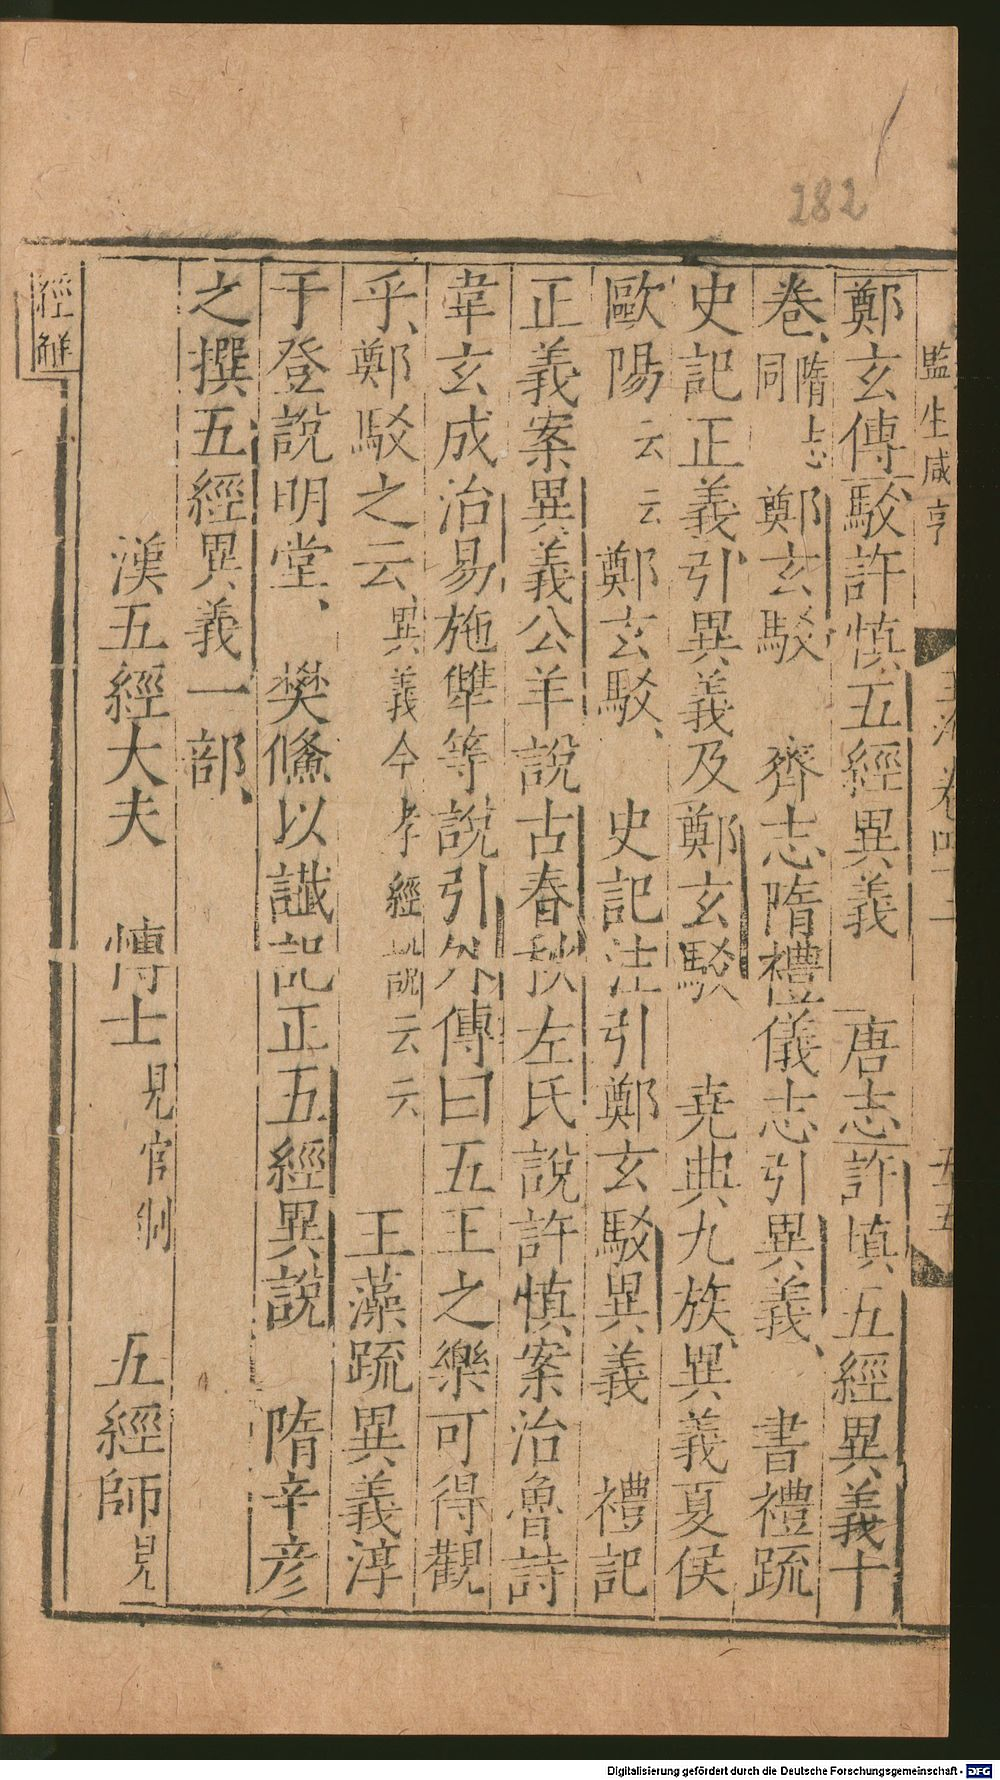 282
監生咸亨
玉海卷四十二
五五
鄭玄傳駁許慎五經異義　唐志許慎五經異義十
卷、隋志同　鄭玄駁　齊志隋禮儀志引異義、　書禮疏
史記正義引異義及鄭玄駁　堯典九族、異義夏侯
歐陽云云鄭玄駁、　史記注引鄭玄駁異義　禮記
正義案異義公羊說古春秋左氏說許慎案治魯詩
韋玄成治易施犨等說引外傳曰五王之樂可得觀
乎、鄭駁之云、異義今孝經說云云　王藻疏異義淳
于登說明堂、　樊鯈以讖記正五經異說　隋辛彦
之撰五經異義一部、
漢五經大夫　博士見官制　五經師見
經解
Digitalisierung gefördert durch die Deutsche Forschungsgemeinschaft - DFG